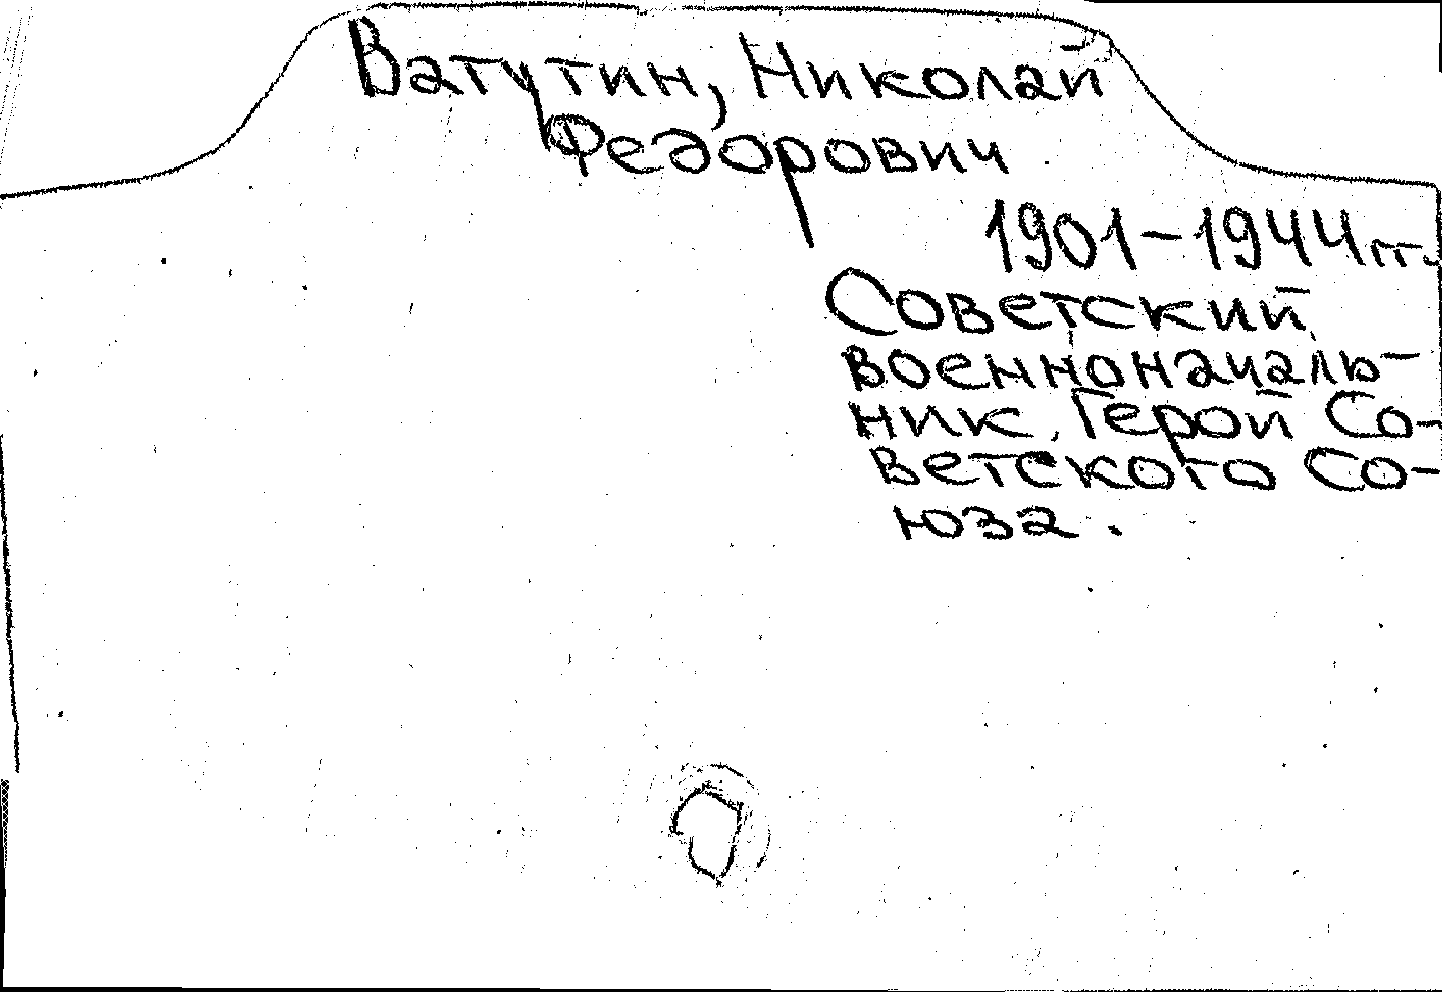 Ватутин, Николай
Федорович
1901-1944гг.
Советский
военноначаль-
ник, Герой Со-
ветского Со-
юза.